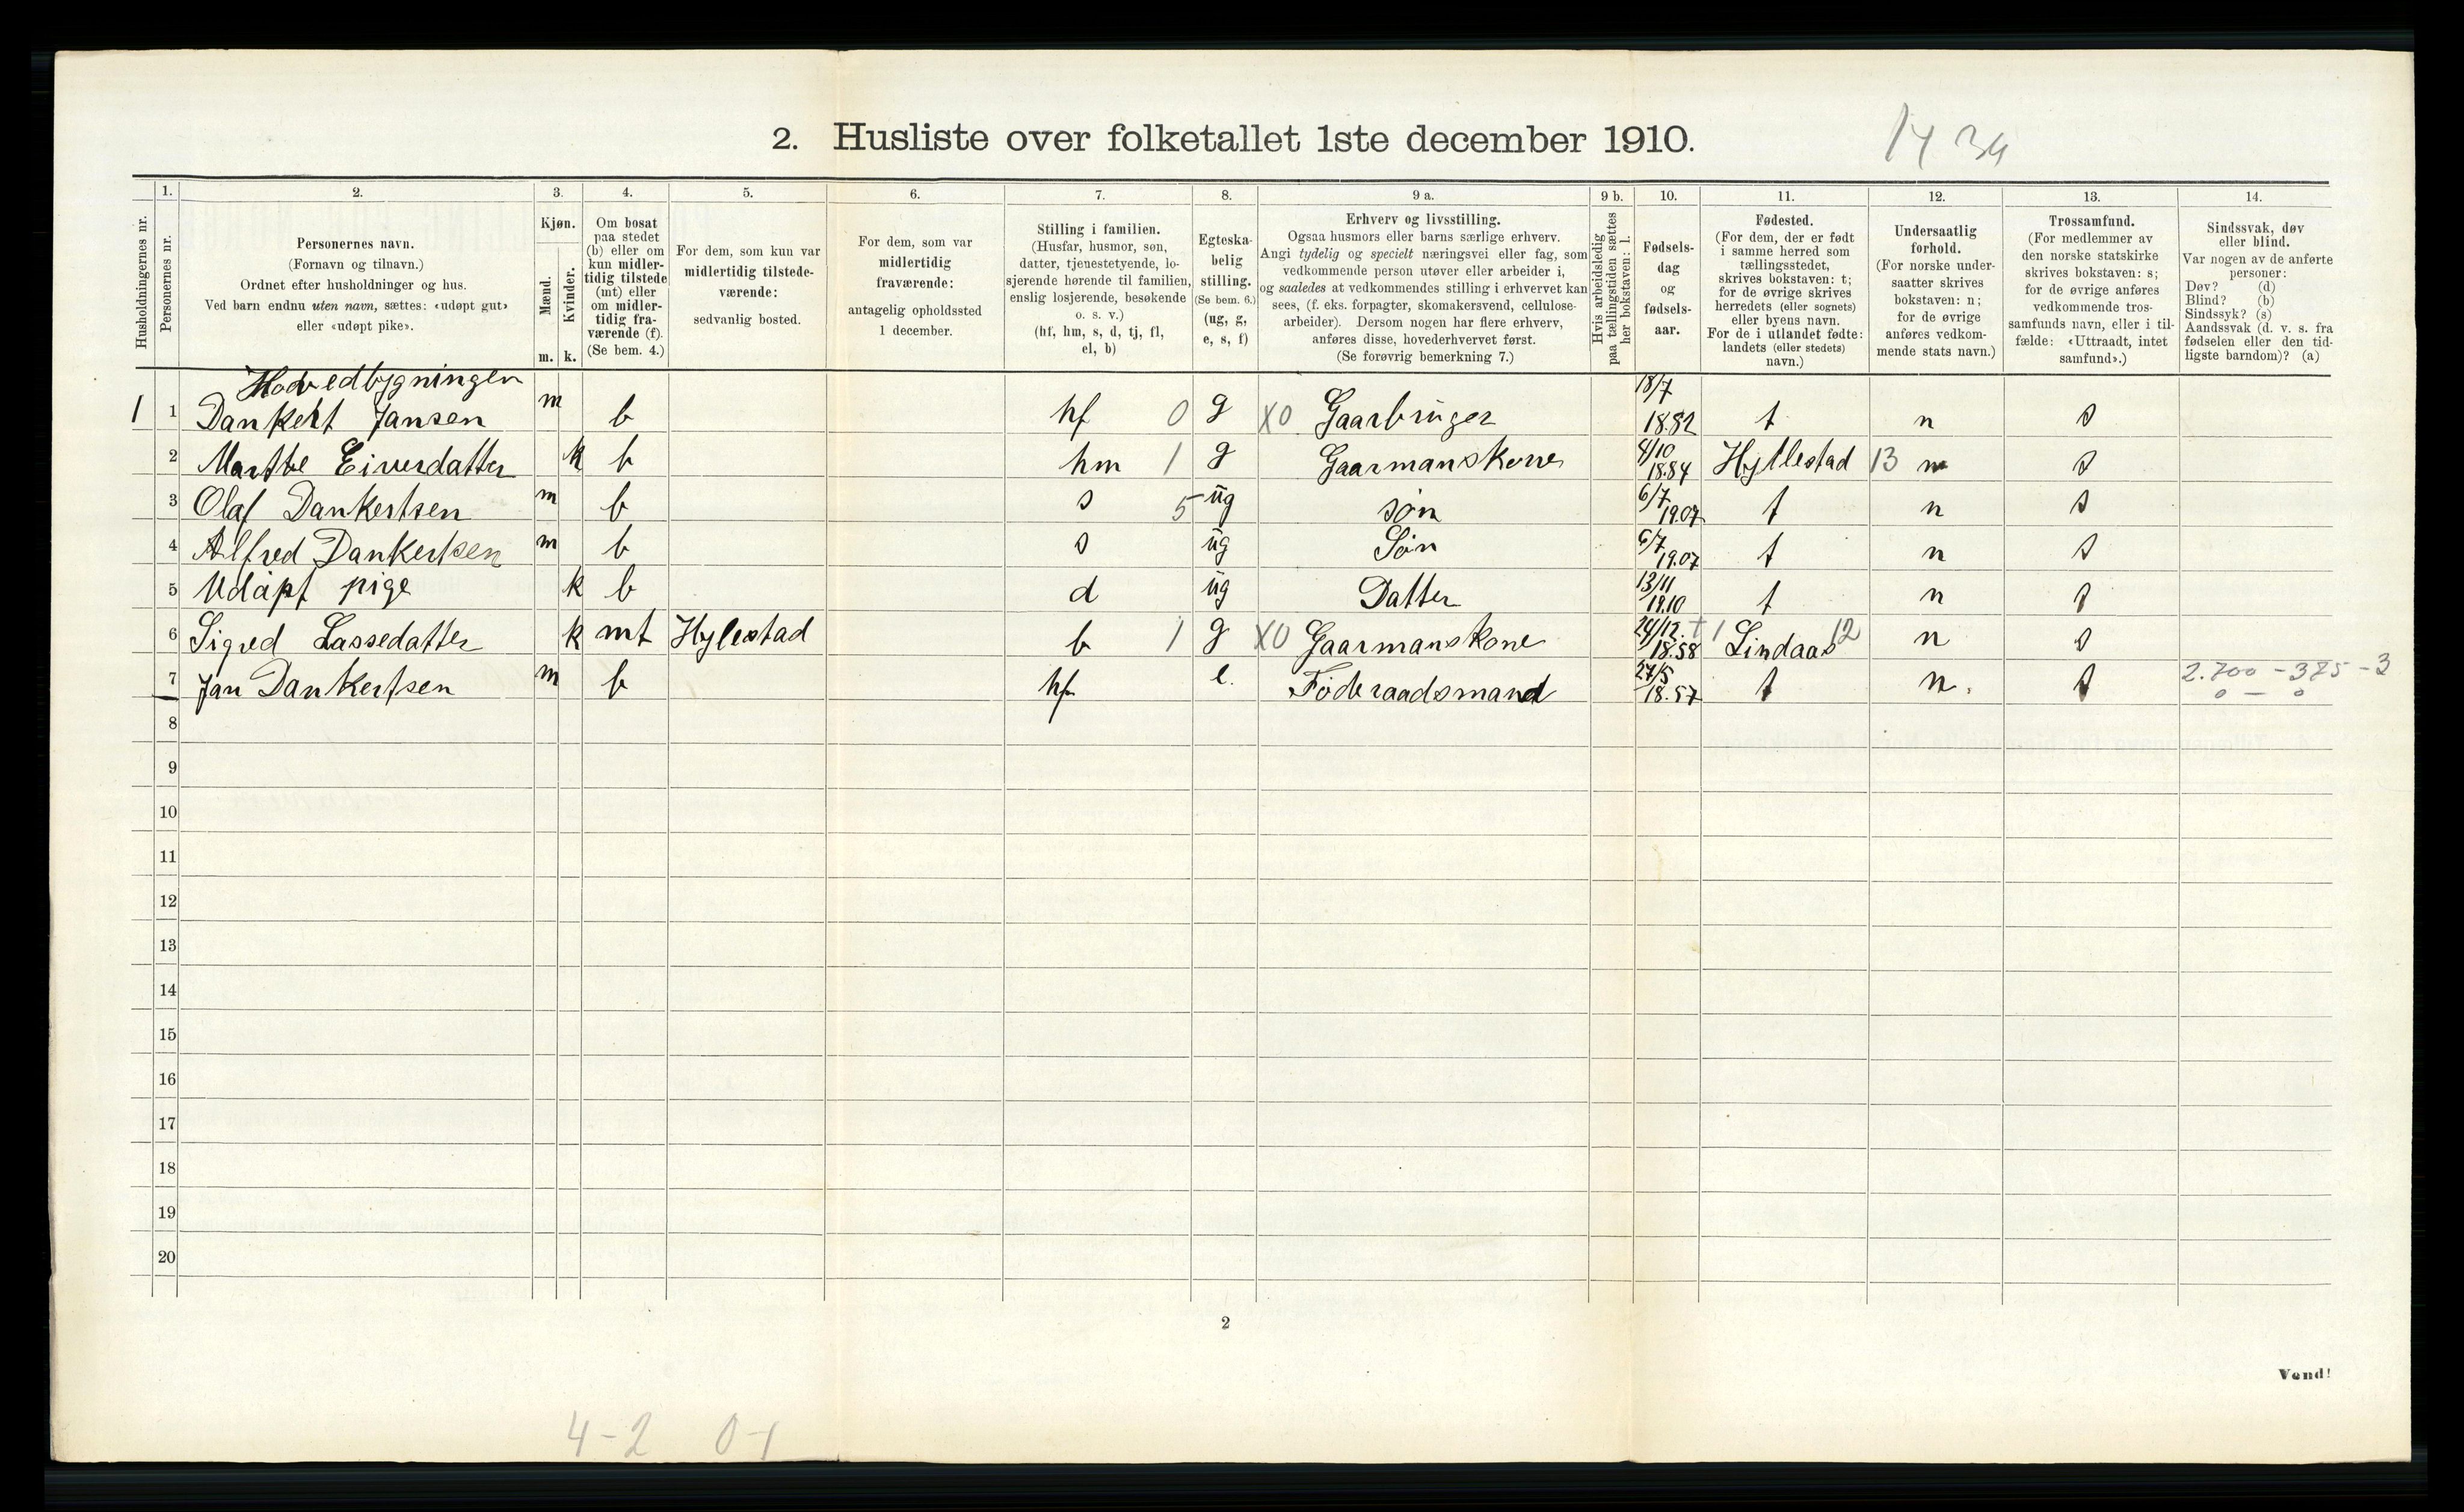 2. Husliste over folketallet 1ste december 1910.
1. 2. 3. 4. 5. 6. 7. 8. 9 a. 9 b. 10. 11. 12. 13. 14.
Husholdningernes nr.
Personernes nr.
Personernes navn.
(Fornavn og tilnavn.)
Ordnet efter husholdninger og hus.
Ved barn endnu uten navn, sættes: «udøpt gut»
eller «udøpt pike».
Kjøn.
Mænd.
Kvinder.
m. k.
Om bosat
paa stedet
(b) eller om
kun midler-
tidig tilstede
(mt) eller
om midler-
tidig fra-
værende (f).
(Se bem. 4.)
For dem, som kun var
midlertidig tilstede-
værende:
sedvanlig bosted.
For dem, som var
midlertidig
fraværende:
antagelig opholdssted
1 december.
Stilling i familien.
(Husfar, husmor, søn,
datter, tjenestetyende, lo-
sjerende hørende til familien,
enslig losjerende, besøkende
o. s. v.)
(hf, hm, s, d, tj, fl,
el, b)
Egteska-
belig
stilling.
(Se bem. 6.)
(ug, g,
e, s, f)
Erhverv og livsstilling.
Ogsaa husmors eller barns særlige erhverv.
Angi tydelig og specielt næringsvei eller fag, som
vedkommende person utøver eller arbeider i,
og saaledes at vedkommendes stilling i erhvervet kan
sees, (f. eks. forpagter, skomakersvend, cellulose-
arbeider). Dersom nogen har flere erhverv,
anføres disse, hovederhvervet først.
(Se forøvrig bemerkning 7.)
Hvis arbeidsledig
paa tællingstiden sættes
her bokstaven: l.
Fødsels-
dag
og
fødsels-
aar.
Fødested.
(For dem, der er født
i samme herred som
tællingsstedet,
skrives bokstaven: t;
for de øvrige skrives
herredets (eller sognets)
eller byens navn.
For de i utlandet fødte:
landets (eller stedets)
navn.)
Undersaatlig
forhold.
(For norske under-
saatter skrives
bokstaven: n;
for de øvrige
anføres vedkom-
mende stats navn.)
Trossamfund.
(For medlemmer av
den norske statskirke
skrives bokstaven: s;
for de øvrige anføres
vedkommende tros-
samfunds navn, eller i til-
fælde: «Uttraadt, intet
samfund».)
Sindssvak, døv
eller blind.
Var nogen av de anførte
personer:
Døv? (d)
Blind? (b)
Sindssyk? (s)
Aandssvak (d. v. s. fra
fødselen eller den tid-
ligste barndom)? (a)
Hovedbygningen
1 1 Dankert Jansen m b hf 0 g X0 Gaarbruger 18/7 18.82 t n s
2 Marthe Eiverdatter k b hm 1 g Gaarmanskone 4/10 18.84 Hyllestad 13 n s
3 Olaf Dankertsen m b s 5 ug søn 6/7 19.07 t n s
4 Alfred Dankertsen m b s ug Søn 6/7 19.07 t n s
5 Udøpt pige k b d ug Datter 13/11 19.10 t n s
6 Sigved Lassedatter k mt Hylestad b 1 g X0 Gaarmanskone 24/12. 18.58 Lindaas 12 n s
7 Jan Dankertsen m b hf e. Føderaadsmand 27/5 18.57 t n. s 2.700 - 375 - 3
0 — 0
8
9
10
11
12
13
14
15
16
17
18
19
20
2
Vend!
4-2 0-1